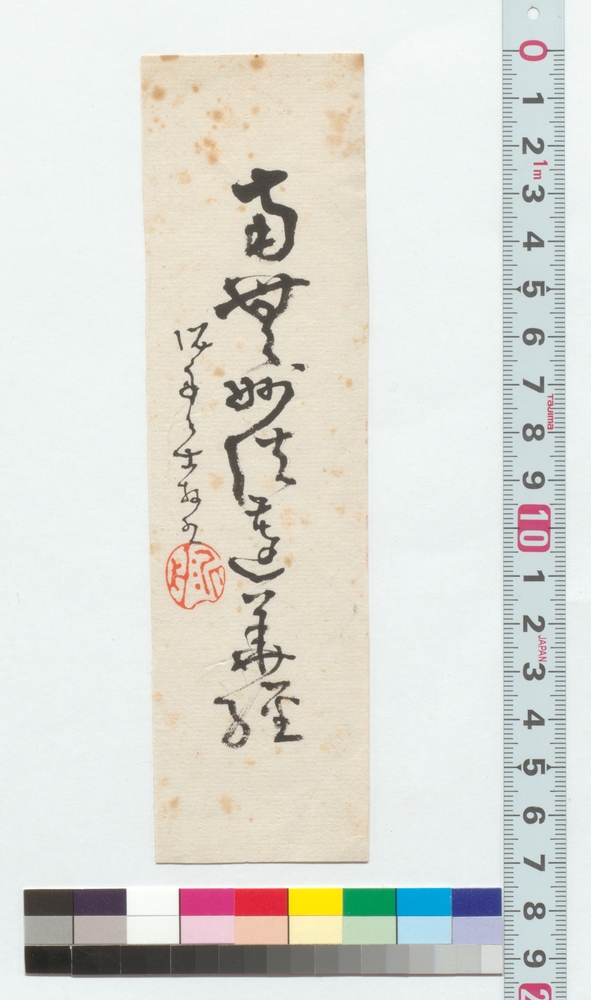 南無妙法蓮華経
0
1
2
1m
3
4
5
6
7
Tajima
8
9
10
1
2
JAPAN
3
4
5
6
7
8
9
2